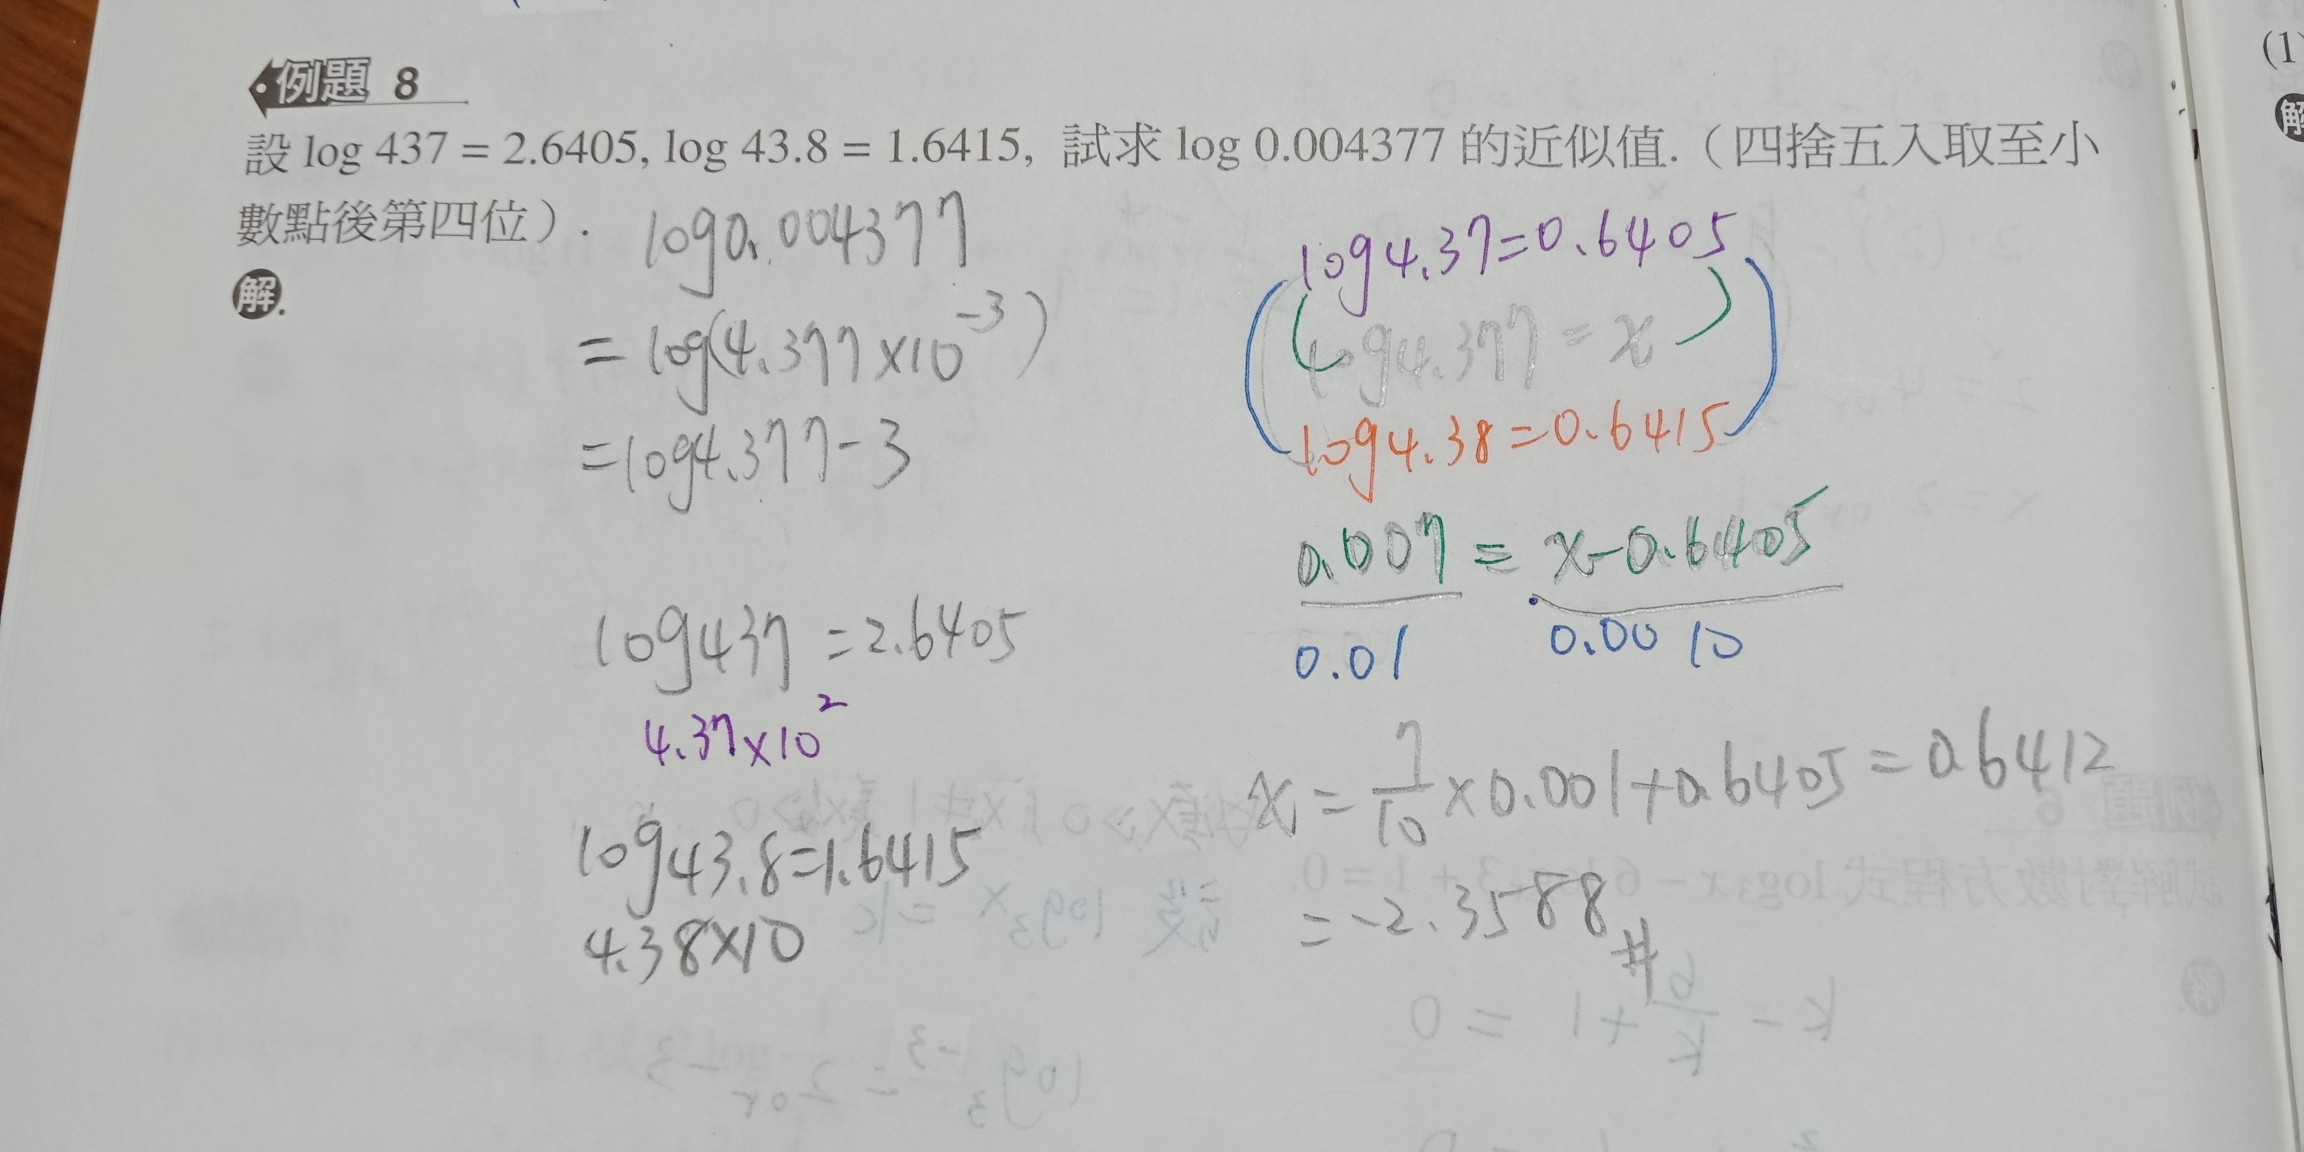 例題 8
設 log 437 = 2.6405, log 43.8 = 1.6415, 試求 log 0.004377 的近似值.（四捨五入取至小
數點後第四位）.
解.
log0.004377
= log(4.377×10⁻³)
=log4.377-3
log437 =2.6405
4.37×10²
log43.8=1.6415
4.38×10
log4.37=0.6405
log4.377=x
log4.38=0.6415
0.007 = x-0.6405
0.01 0.0010
x = 7/10 ×0.001+0.6405=0.6412
=-2.3588#
(1)
解